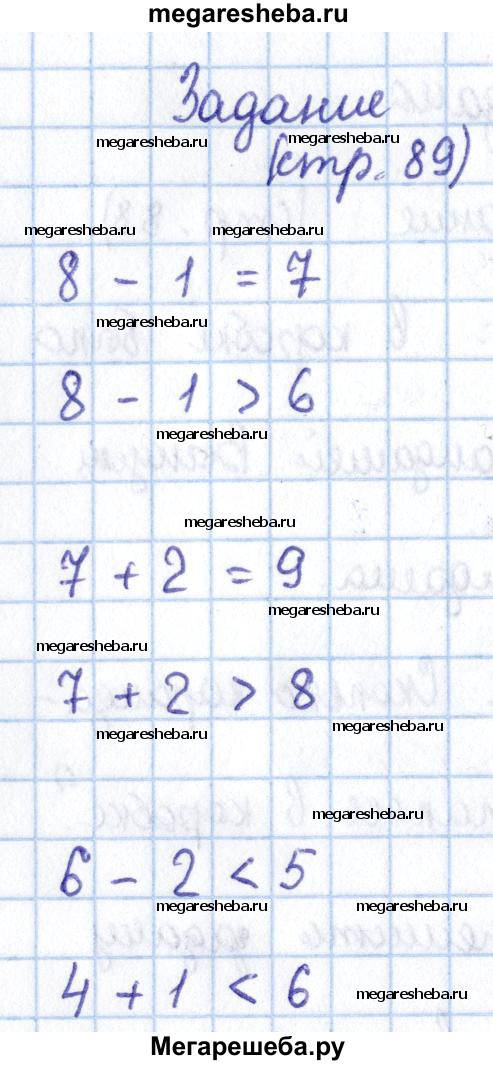 megaresheba.ru
Задание
megaresheba.ru megaresheba.ru
(стр. 89)
megaresheba.ru megaresheba.ru
8 - 1 = 7
megaresheba.ru
8 - 1 > 6
megaresheba.ru
megaresheba.ru
7 + 2 = 9
megaresheba.ru
megaresheba.ru
7 + 2 > 8
megaresheba.ru
megaresheba.ru
megaresheba.ru
6 - 2 < 5
megaresheba.ru megaresheba.ru
4 + 1 < 6
megaresheba.ru
Мегарешеба.ру